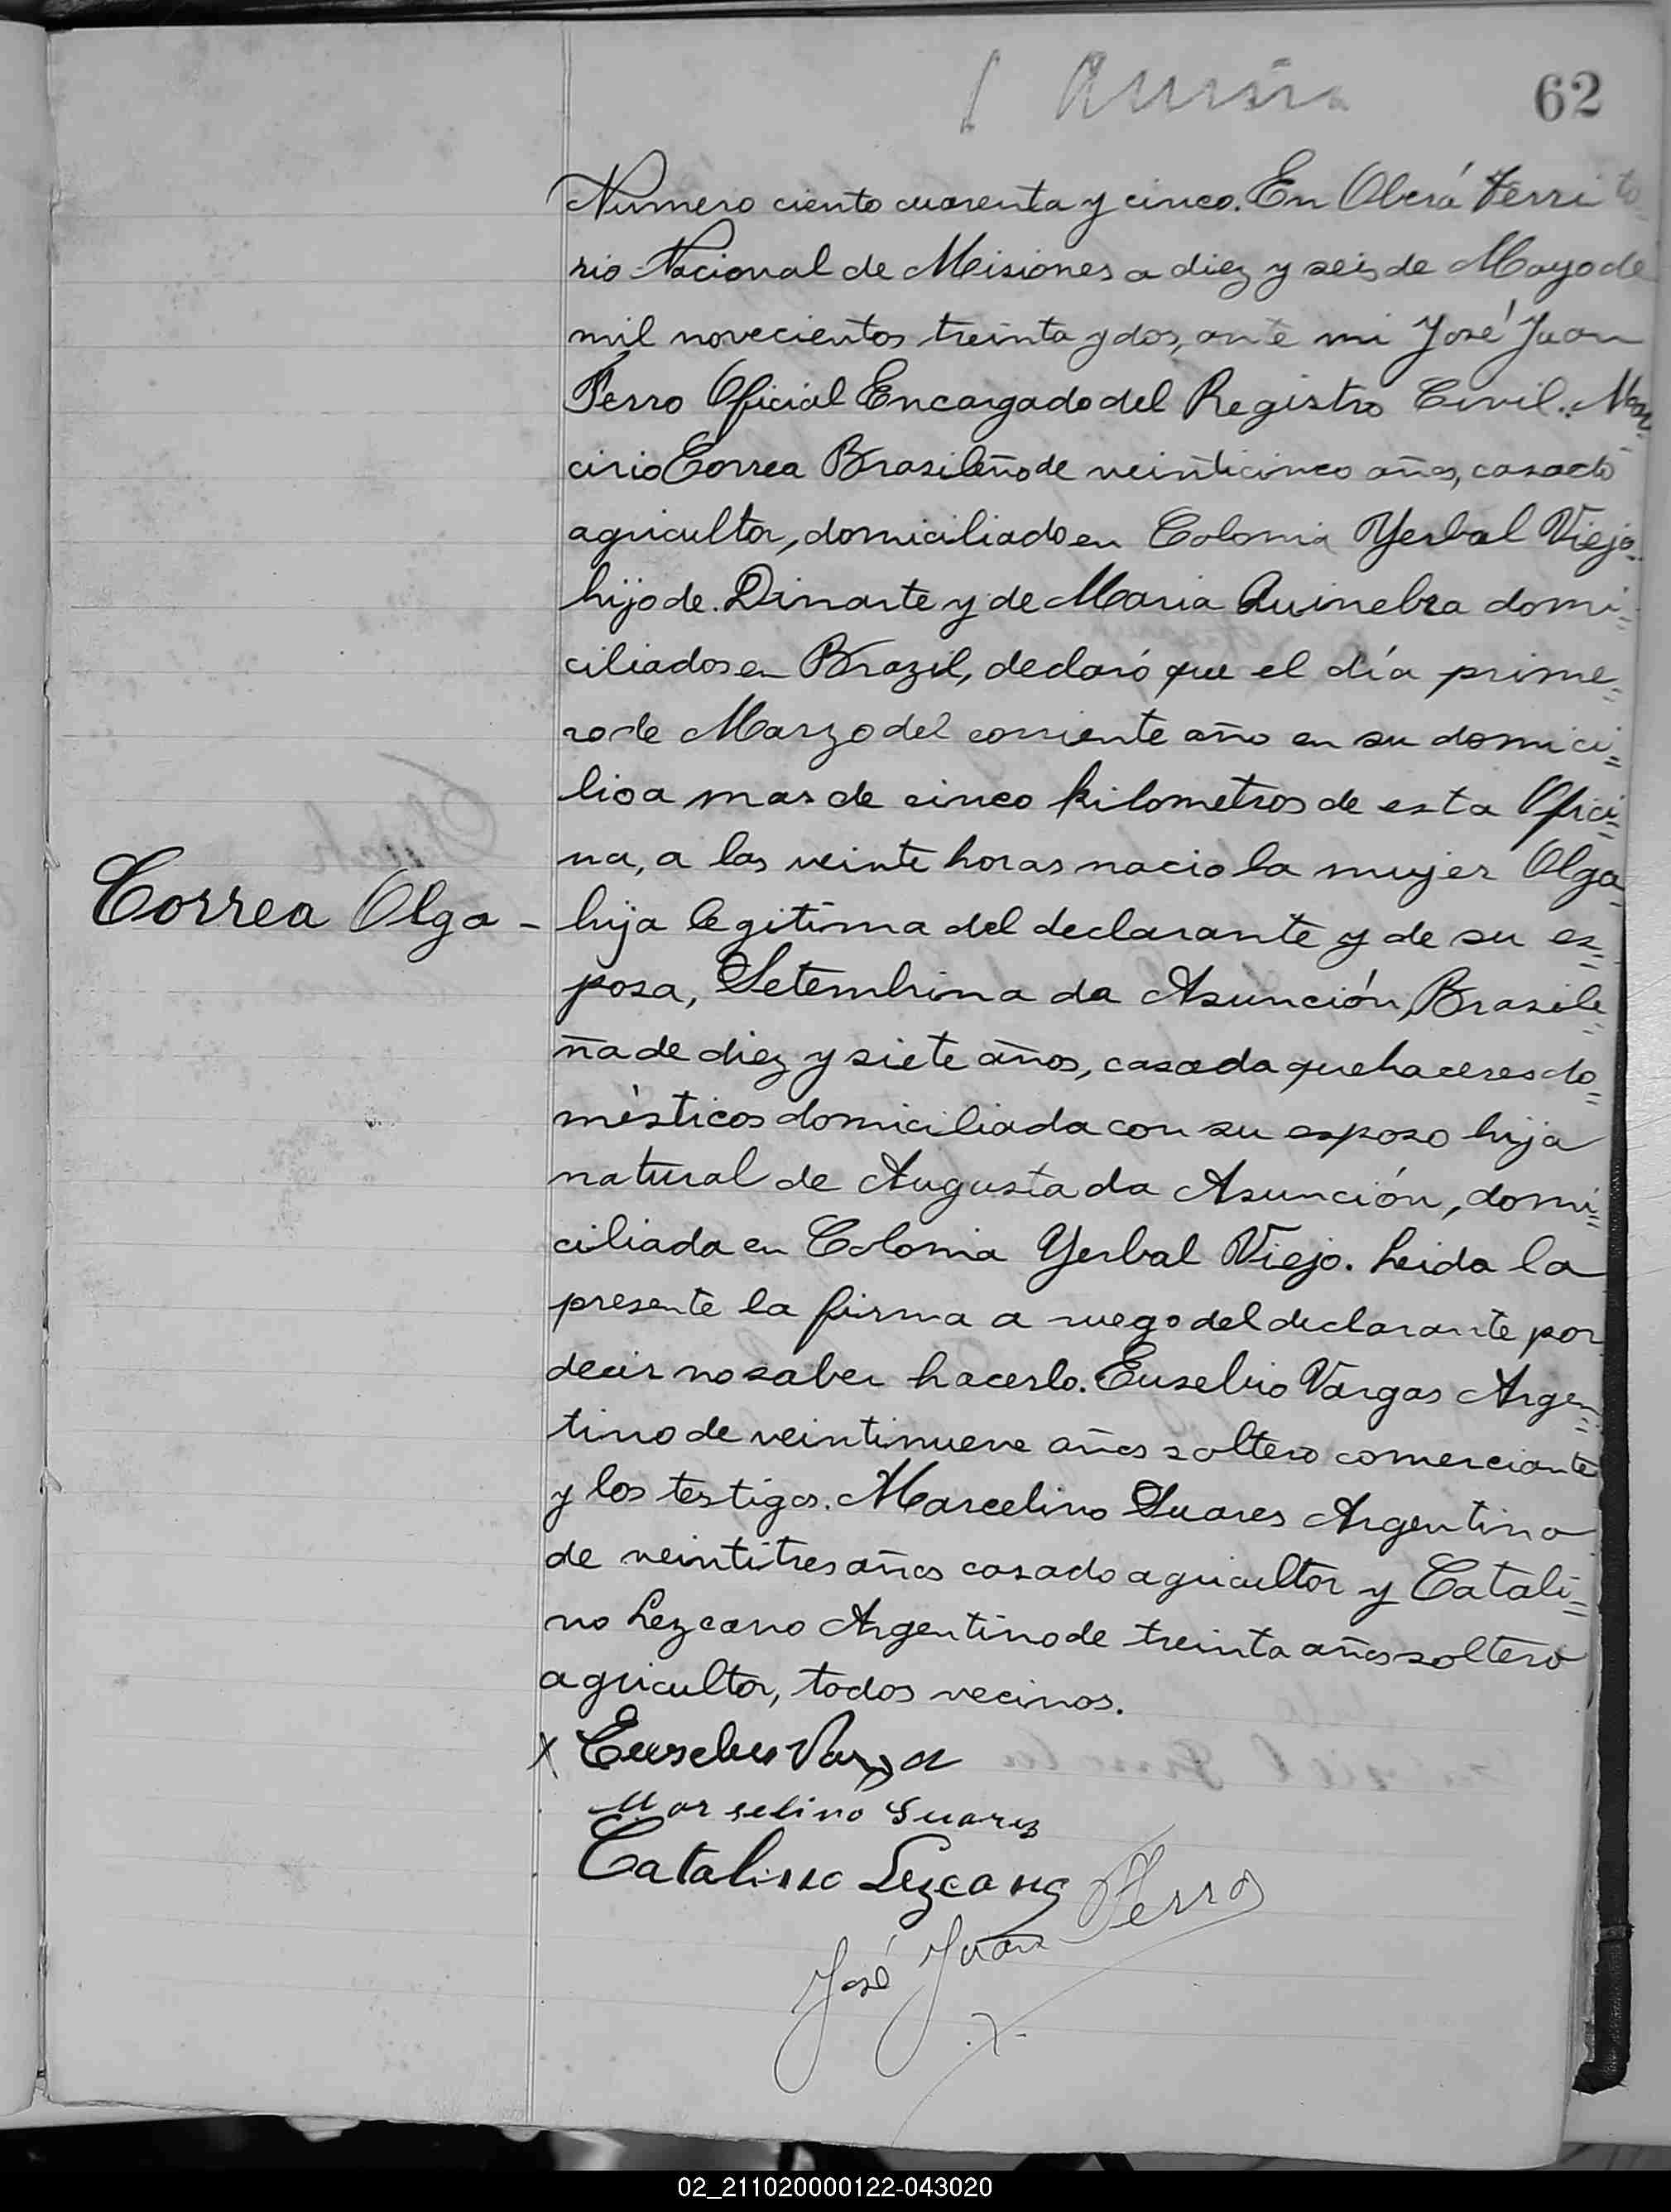 62
Numero ciento cuarenta y cinco. En Oberá Territo-
rio Nacional de Misiones a diez y seis de Mayo de
mil novecientos treinta y dos, ante mi José Juan
Ferro Oficial Encargado del Registro Civil.. Mar=
cirio Correa Brasileño de veinticinco años, casado
agricultor, domiciliado en Colonia Yerbal Viejo.
hijo de. Dinarte y de Maria Quinebra domi=
ciliados en Brazil, declaró que el día prime=
ro de Marzo del corriente año en su domici=
lio a mas de cinco kilometros de esta Ofici=
na, a las veinte horas nacio la mujer Olga
Correa Olga - hija legitima del declarante y de su es=
posa, Setembrina da Asunción, Brasile=
ña de diez y siete años, casada quehaceres do=
mésticos domiciliada con su esposo hija
natural de Augusta da Asunción, domi=
ciliada en Colonia Yerbal Viejo. Leida la
presente la firma a ruego del declarante por
decir no saber hacerlo. Eusebio Vargas Argen=
tino de veintinueve años soltero comerciante
y los testigos. Marcelino Suares Argentino
de veintitres años casado agricultor y Catali=
no Lezcano Argentino de treinta años soltero
agricultor, todos vecinos.
x Eusebio Vargas
Marselino Suarez
Catalino Lezcano
José Juan Ferro
02_211020000122-043020